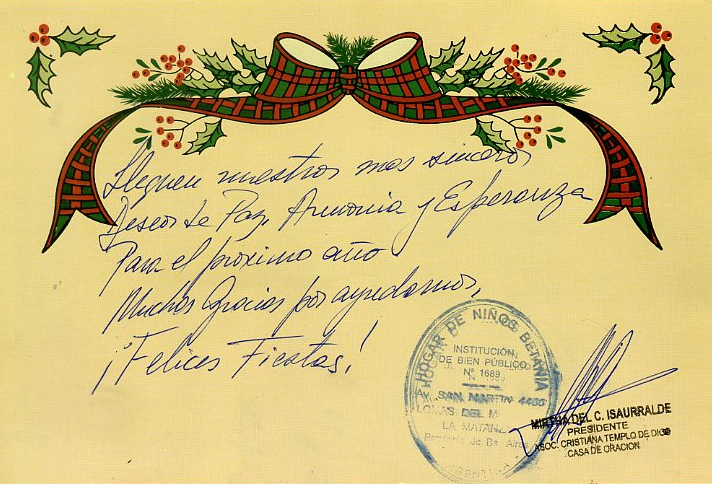 Lleguen nuestros mas sinceros
Deseos de Paz, Armonia y Esperanza
Para el proximo año
Muchas Gracias por ayudarnos,
¡Felices Fiestas!
HOGAR DE NIÑOS BETANIA
INSTITUCIÓN
DE BIEN PÚBLICO
Nº 1689
AV. SAN MARTIN 4400
LOMAS DEL M
LA MATANZ
Provincia de Bs. Aires
ARGENTINA
MIRTHA DEL C. ISAURRALDE
PRESIDENTE
ASOC. CRISTIANA TEMPLO DE DIOS
CASA DE ORACION